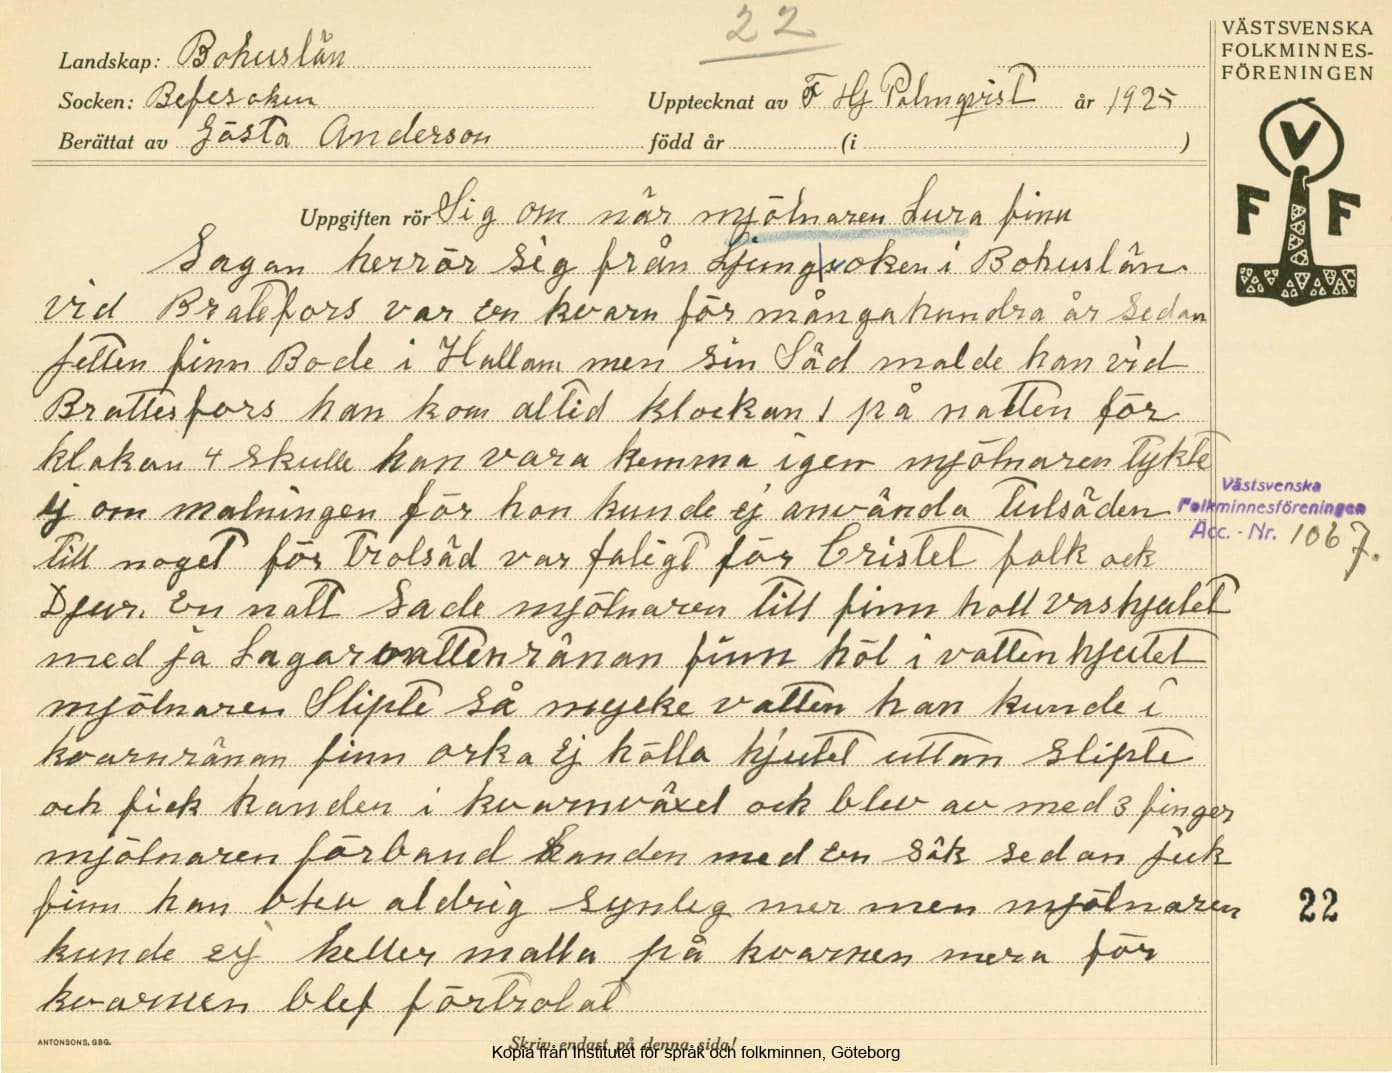 22
VÄSTSVENSKA
FOLKMINNES-
FÖRENINGEN
Landskap: Bohuslän
Socken: Befesoken
Upptecknat av F Hj Palmqvist år 1925
Berättat av Gösta Anderson född år (i )
V
F F
Uppgiften rör Sig om när mjölnaren Lura finn
Sagan herrör sig från Ljungsoken i Bohuslän
vid Bratefors var en kvarn för många hundra år sedan
jetten finn Bode i Hallam men sin Säd malde han vid
Brattesfors han kom altid klockan 1 på natten för
klokan 4 skulle han vara hemma igen mjölnaren tykte
ej om malningen för han kunde ej använda tulsäden
till noget för trolsäd var faligt för Cristet folk ock
Djur. En natt sade mjölnaren till finn holl vashjulet
med ja Lagar vattenränan finn höl i vattenhjulet
mjölnaren Slipte så mycke vatten han kunde i
kvarnränan finn orka Ej hölla hjulet uttan slipte
och fick handen i kvarnväxel ock blev av med 3 finger
mjölnaren förband handen med en säk sedan jick
finn han blev aldrig synleg mer men mjölnaren
kunde ej heller malla på kvarnen mera för
kvarnen blef förtrolat
Västsvenska
Folkminnesföreningen
Acc.-Nr. 1067.
22
ANTONSONS, GBG.
Skriv endast på denna sida!
Kopia från Institutet för språk och folkminnen, Göteborg